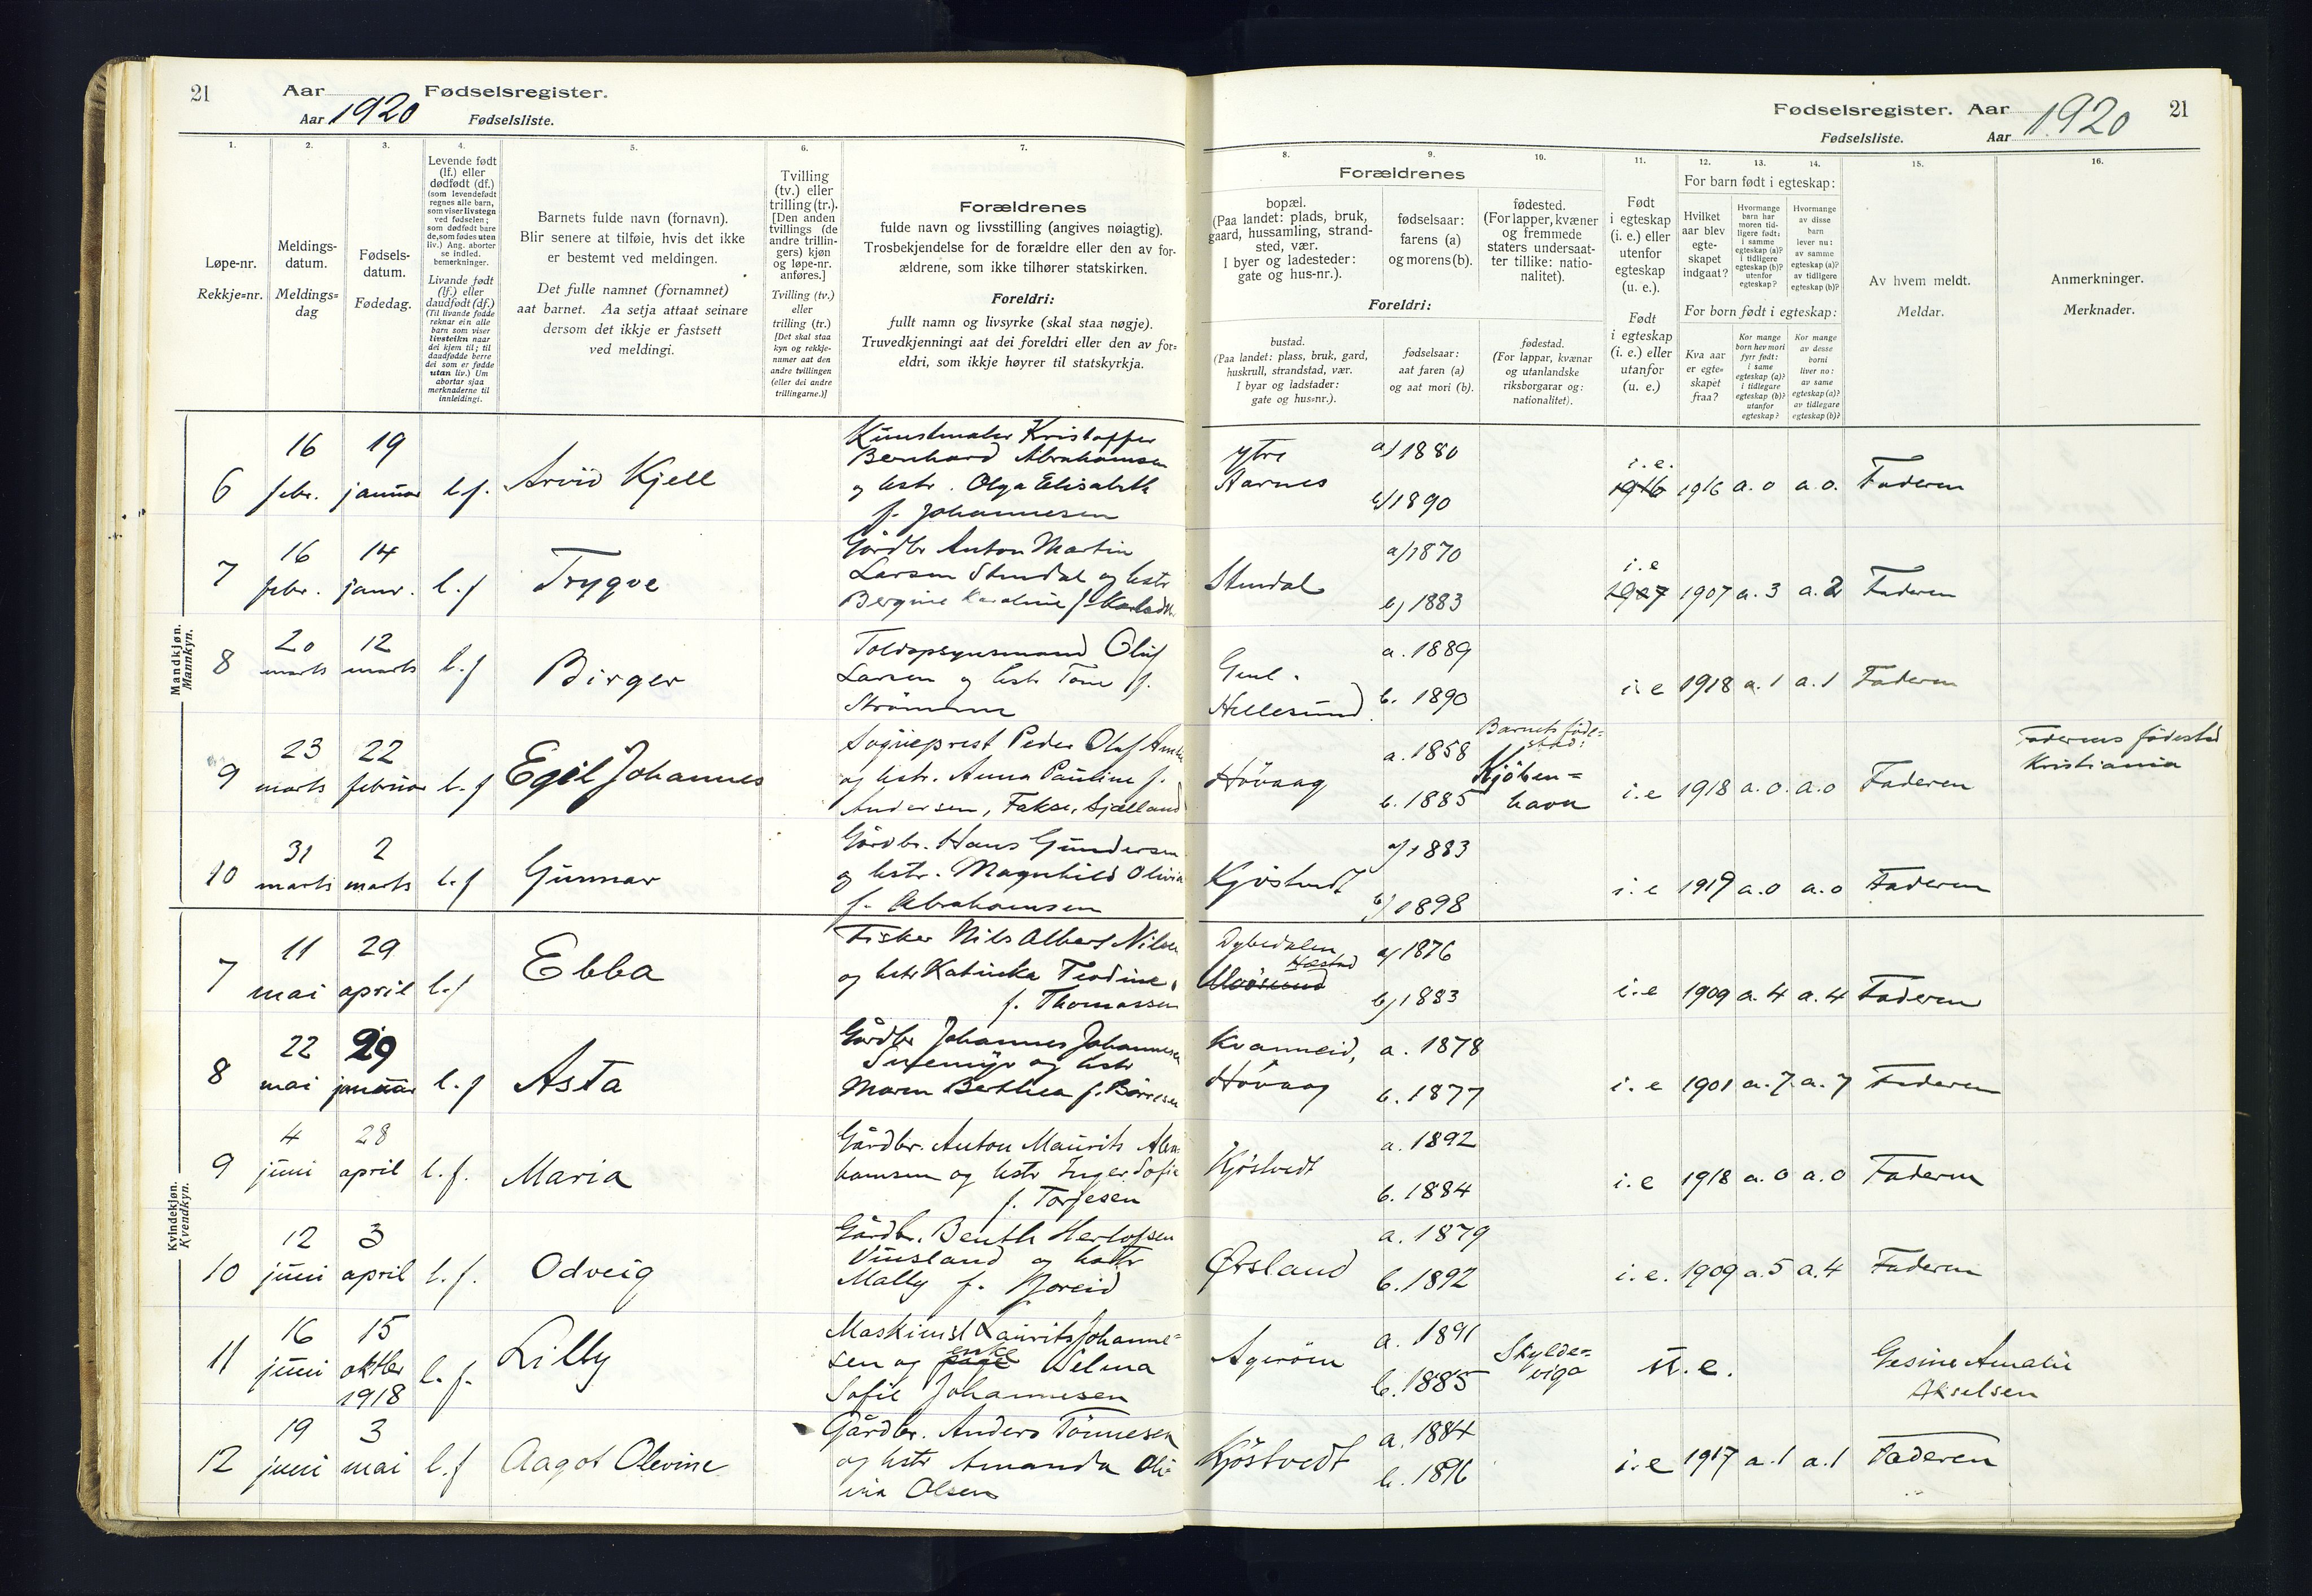 21
Aar
Fødselsregister.
Aar 1920
Fødselsliste.
Fødselsregister. Aar
21
Fødselsliste.
Aar 1920
1.
2.
3.
4.
5.
6.
7.
8.
9.
10.
11.
12.
13.
14.
15.
16.
Løpe-nr.
Rekkje=nr.
Meldings-
datum.
Meldings=
dag
Fødsels-
datum.
Fødedag.
Levende født
(lf.) eller
dødfødt (df.)
(som levendefødt
regnes alle barn,
som viser livstegn
ved fødselen;
som dødfødt bare
de, som fødes uten
liv.) Ang. aborter
se indled.
bemerkninger.
Livande født
(lf.) eller
daudfødt (df.)
(Til livande fødde
reknar ein alle
barn som viser
livsteikn naar
dei kjem til; til
daudfødde berre
dei som er fødde
utan liv.) Um
abortar sjaa
merknaderne til
innleidingi.
Barnets fulde navn (fornavn).
Blir senere at tilføie, hvis det ikke
er bestemt ved meldingen.
Det fulle namnet (fornamnet)
aat barnet. Aa setja attaat seinare
dersom det ikkje er fastsett
ved meldingi.
Tvilling
(tv.) eller
trilling (tr.).
[Den anden
tvillings (de
andre trillin-
gers) kjøn
og løpe-nr.
anføres.]
Tvilling (tv.)
eller
trilling (tr.)
[Det skal staa
kyn og rekkje-
numer aat den
andre tvillingen
(eller dei andre
trillingarne.)]
Forældrenes
fulde navn og livsstilling (angives nøiagtig).
Trosbekjendelse for de forældre eller den av for-
ældrene, som ikke tilhører statskirken.
Foreldri:
fullt namn og livsyrke (skal staa nøgje).
Truvedkjenningi aat dei foreldri eller den av for=
eldri, som ikkje høyrer til statskyrkja.
Forældrenes
bopæl.
(Paa landet: plads, bruk,
gaard, hussamling, strand-
sted, vær.
I byer og ladesteder:
gate og hus-nr.).
fødselsaar:
farens (a)
og morens (b).
fødested.
(For lapper, kvæner
og fremmede
staters undersaat-
ter tillike: natio-
nalitet).
Foreldri:
bustad.
(Paa landet: plass, bruk, gard,
huskrull, strandstad, vær.
I byar og ladstader:
gate og hus=nr.).
fødselsaar:
aat faren (a)
og aat mori (b).
fødestad.
(For lappar, kvænar
og utanlandske
riksborgarar og:
nationalitet).
Født
i egteskap
(i. e.) eller
utenfor
egteskap
(u. e.).
Født
i egteskap
(i. e.) eller
utanfor
(u. e.)
For barn født i egteskap:
Hvilket
aar blev
egte-
skapet
indgaat?
Hvormange
barn har
moren tid-
ligere født:
i samme
egteskap (a)?
i tidligere
egteskap (b)?
utenfor
egteskap?
Hvormange
av disse
barn
lever nu:
av samme
egteskap (a)?
av tidligere
egteskap (b)?
For born født i egteskap:
Kva aar
er egte=
skapet
fraa?
Kor mange
born hev mori
fyrr født:
i same
egteskap (a)?
i tidlegare
egteskap (b)?
utanfor
egteskap?
Kor mange
av desse
borni
liver no:
av same
egteskap (a)?
av tidlegare
egteskap (b)?
Av hvem meldt.
Meldar.
Anmerkninger.
Merknader.
Mandkjøn.
Mannkyn.
6 16 febr. 19 januar l.f. Arvid Kjell
Kunstmaler Kristoffer
Bernhard Abrahamsen
og hstr. Olga Elisabeth
f. Johannesen
ytre
Aarnes
a) 1880
b) 1890
i. e.
1916 1916 a. 0 a. 0. Faderen
7 16 febr. 14 janr. l.f Trygve
Gårdbr Anton Martin
Larsen Stendal og hstr
Bergine Karoline f.
Stendal
a) 1870
b) 1883
i. e
1907 1907 a. 3 a. 2 Faderen
8 20 marts 12 marts l.f Birger
Toldopsynsmand Oluf
Larsen og hstr Tone f.
Strømmen
Hellesund
a. 1889
b. 1890
i. e 1918 a. 1 a. 1 Faderen
9 23 marts 22 februar l.f Egil Johannes
Sogneprest Peder Olaf
og hstr. Anna Pauline f.
Andersen, Fakse, Sjælland
Høvaag
a. 1858
b. 1885
Barnets føde=
stad:
Kjøben=
havn
i. e 1918 a. 0. a. 0 Faderen
Faderens fødested
Kristiania
10 31 marts 2 marts l.f Gunnar
Gårdbr. Hans Gundersen
og hstr. Magnhild Olivia
f. Abrahamsen
Kjøstvedt
a) 1883
b) 1898
i. e 1919 a. 0 a. 0 Faderen
Kvindekjøn.
Kvendkyn.
7 11 mai 29 april l.f Ebba
Fisker Nils Albert Nilsen
og hstr Katinka Teodine,
f. Thomassen
Dybedalen
Hæstad
Uløsund
a) 1876
b) 1883
i. e 1909 a. 4 a. 4 Faderen
8 22 mai 29 januar l.f Asta
Gårdbr Johannes Johannesen
og hstr
Maren Berthea f. Børresen
Kvanneid,
Høvaag
a. 1878
b. 1877
i. e 1901 a. 7. a. 7 Faderen
9 4 juni 28 april l.f. Maria
Gårdbr. Anton Maurits Abra
hamsen og hstr Inger Sofie
f. Torjesen
Kjøstvedt
a. 1892
b. 1884
i. e 1918 a. 0 a. 0 Faderen
10 12 juni 3 april l.f. Odveig
Gårdbr. Benth Herlofsen
Vinsland og hstr
Mally f.
Ørsland
a. 1879
b. 1892
i. e. 1909 a. 5 a. 4 Faderen
11 16 juni 15 oktber 1918 l.f. Lilly
Maskinst Laurits Johanne=
sen og enke Selma
Sofie Johannesen
Agerøen
a. 1891
b. 1885
Skylde=
viga
u. e.
Gesine Amalie
Akselsen
12 19 juni 3 mai l.f Aagot Olevine
Gårdbr. Anders Tønnesen
og hstr Amanda Oli-
via Olsen
Kjøstvedt
a. 1884
b. 1896
i. e 1917 a. 1 a. 1 Faderen